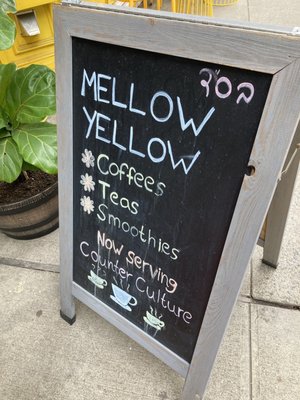 MELLOW
YELLOW
Coffees
Teas
Smoothies
Now serving
Counter Culture